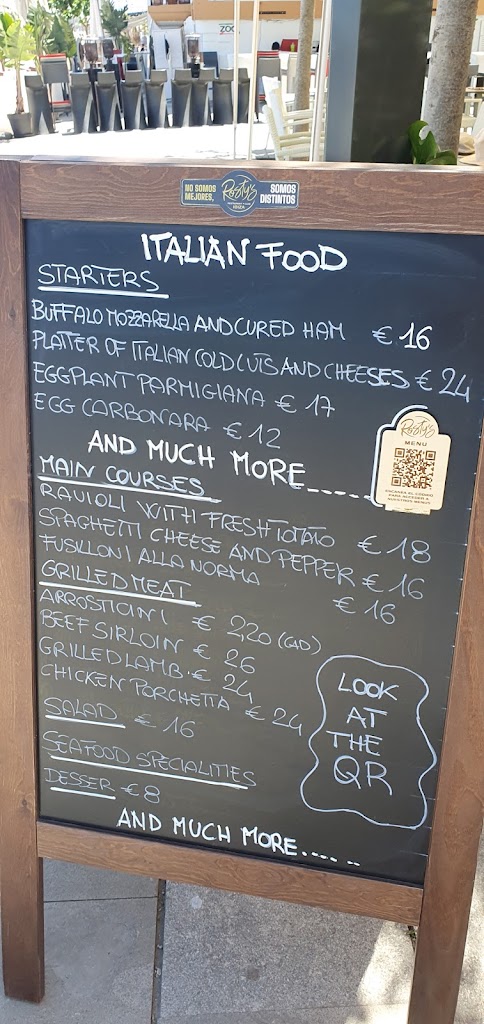 ZOO
NO SOMOS MEJORES,
Rosty's
IBIZA
SOMOS DISTINTOS
ITALIAN FOOD
STARTERS
BUFFALO MOZZARELLA AND CURED HAM € 16
PLATTER OF ITALIAN COLD CUTS AND CHEESES € 24
EGGPLANT PARMIGIANA € 17
EGG CARBONARA € 12
AND MUCH MORE.....
Rosty's
MENU
ESCANEA EL CÓDIGO
PARA ACCEDER A
NUESTROS MENÚS
MAIN COURSES
RAVIOLI WITH FRESH TOMATO € 18
SPAGHETTI CHEESE AND PEPPER € 16
FUSILLONI ALLA NORMA € 16
GRILLED MEAT
ARROSTICINI € 2,20 (CAD)
BEEF SIRLOIN € 26
GRILLED LAMB € 24
CHICKEN PORCHETTA € 24
SALAD € 16
SEAFOOD SPECIALITIES
DESSER € 8
LOOK
AT
THE
QR
AND MUCH MORE.....